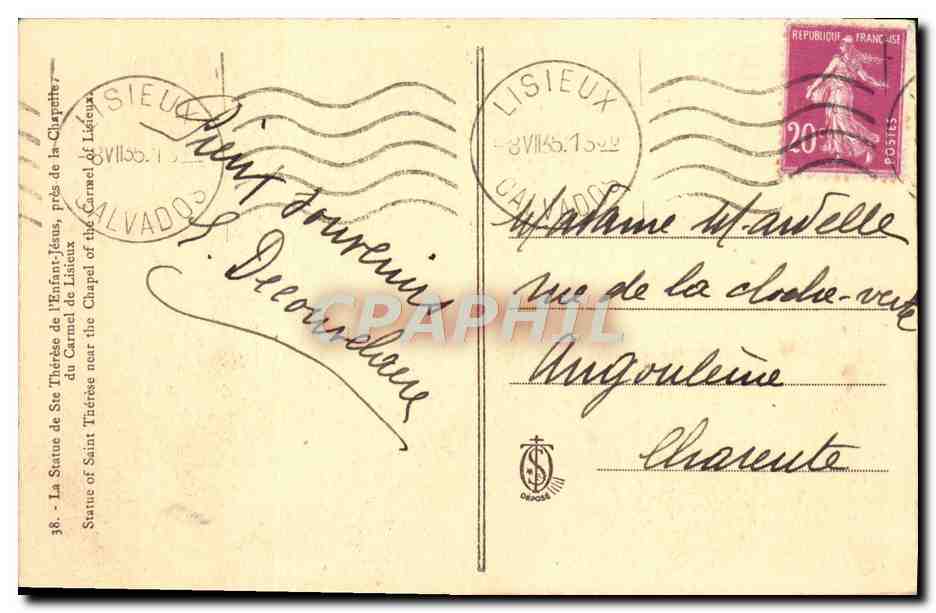 38. - La Statue de Ste Thérèse de l'Enfant-Jésus, près de la Chapelle
du Carmel de Lisieux
Statue of Saint Thérèse near the Chapel of the Carmel of Lisieux.
LISIEUX
8 VII 35. 1
CALVADOS
Pieux souvenirs
S. Decourchaene
LISIEUX
-8 VII 35. 13
CALVADOS
REPUBLIQUE FRANÇAISE
20c
POSTES
Madame Mardelle
rue de la cloche-verte
Angoulême
Charente
DÉPOSÉ
CPAPHIL